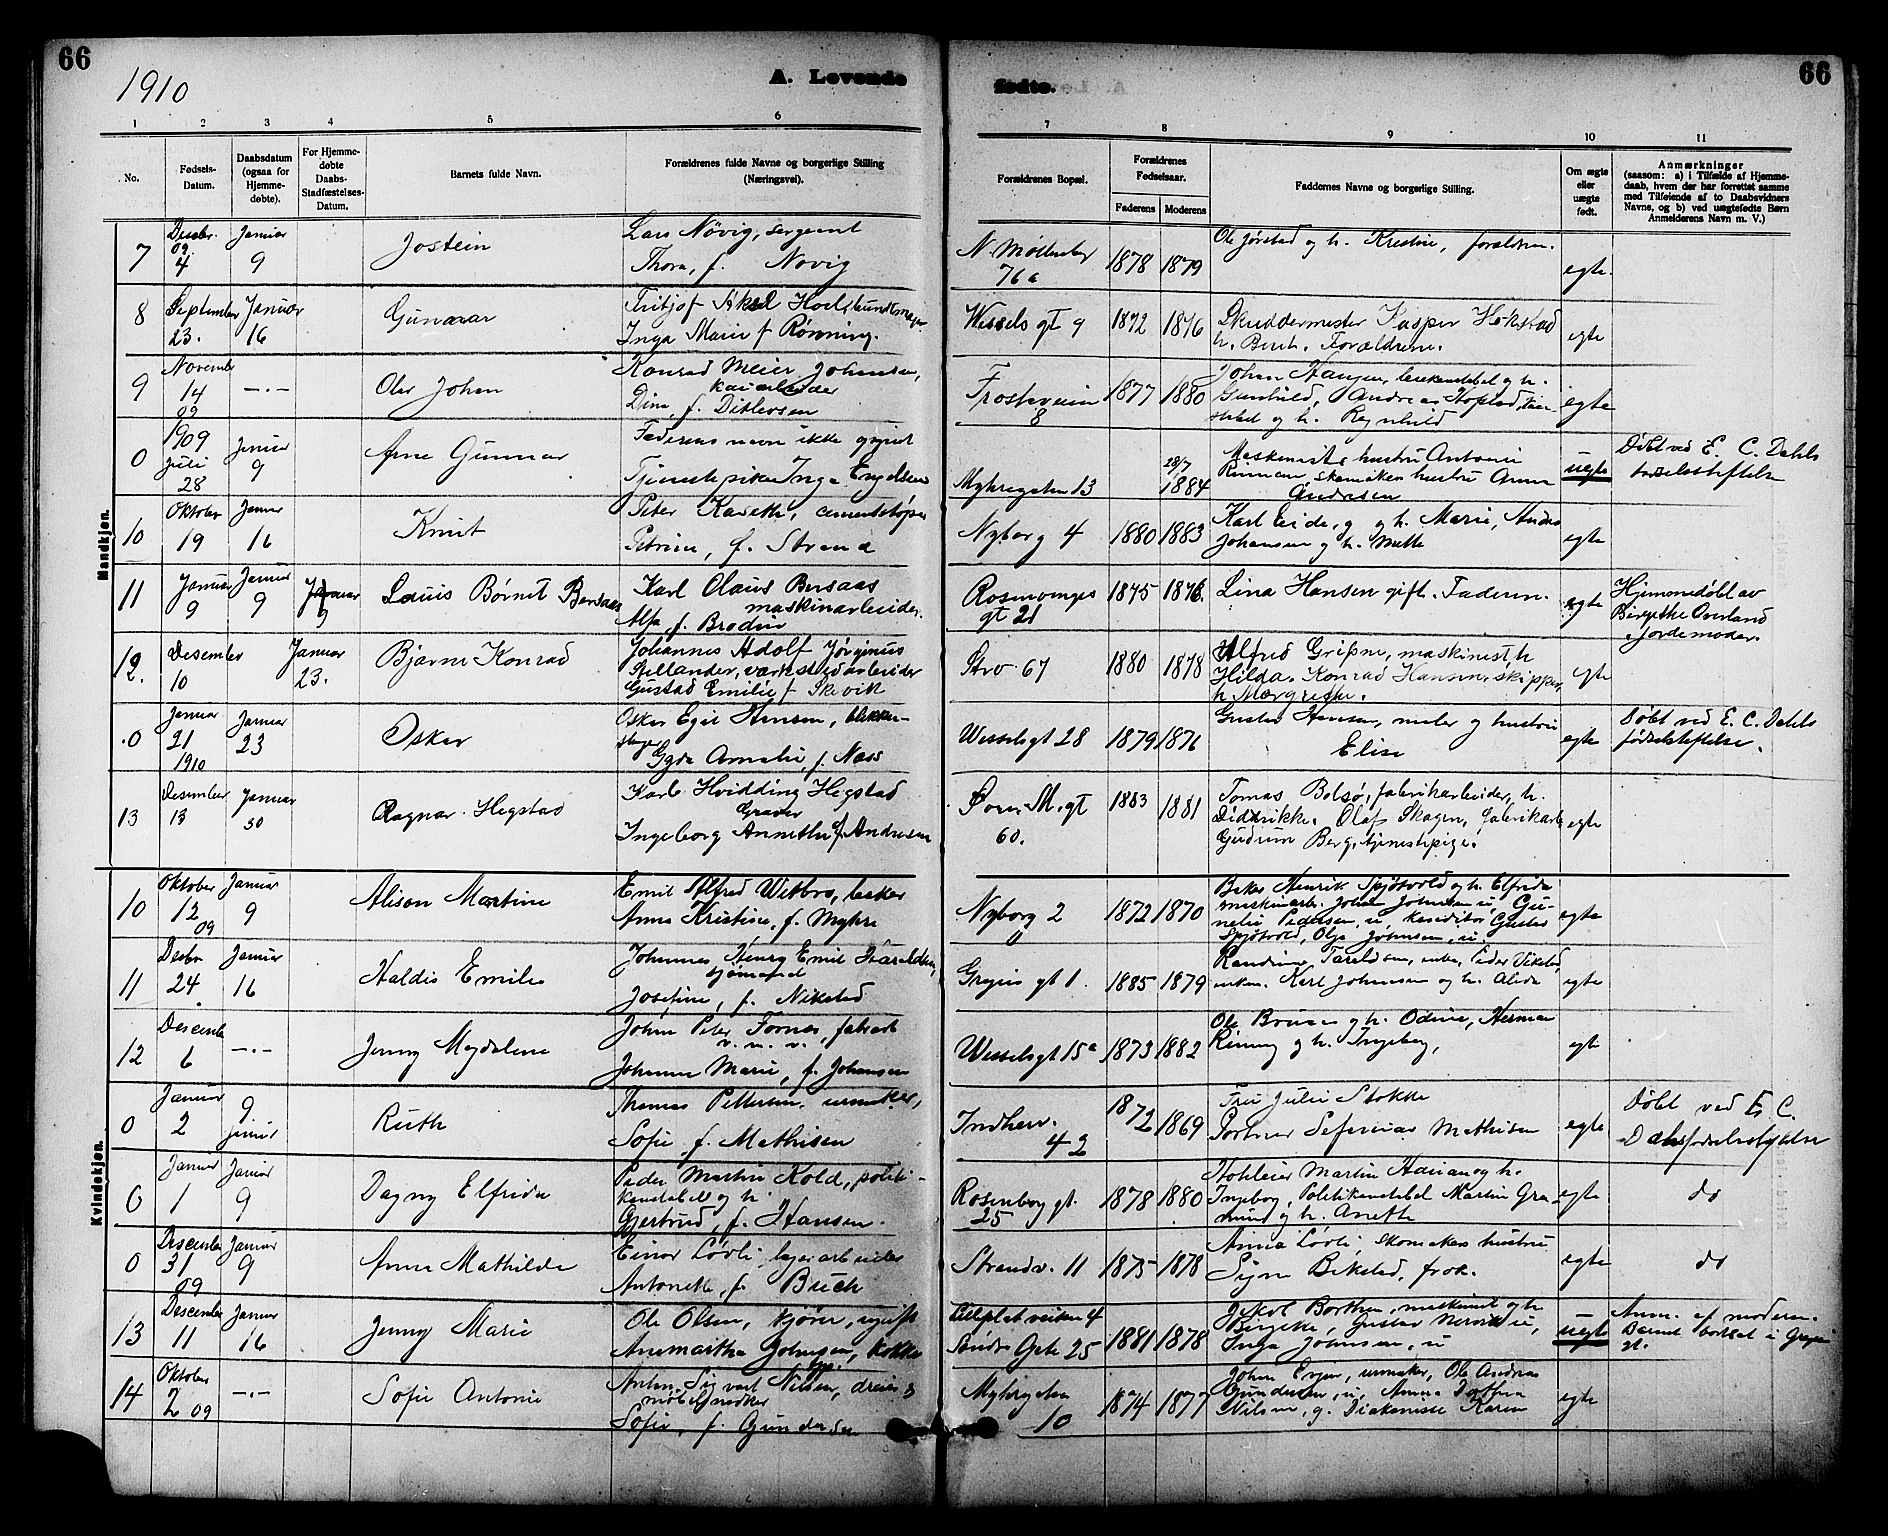 66
1910
A. Levende
fødte.
66
1
2
3
4
5
6
7
8
9
10
11
No.
Fødsels-
Datum.
Daabsdatum
(ogsaa for
Hjemme-
døbte).
For Hjemme-
døbte
Daabs-
Stadfæstelses-
Datum.
Barnets fulde Navn.
Forældrenes fulde Navne og borgerlige Stilling
(Næringsvei).
Forældrenes Bopæl.
Forældrenes
Fødselsaar.
Faderens
Moderens
Faddernes Navne og borgerlige Stilling.
Om ægte
eller
uægte
født.
Anmærkninger
(saasom: a) i Tilfælde af Hjemme-
daab, hvem der har forrettet samme
med Tilføiende af to Daabsvidners
Navne, og b) ved uægtefødte Børn
Anmelderens Navn m. V.)
Mandkjøn.
7
09
4
Januar
9
Jostein
Lars Növig, sergeant
Thora, f. Novig
N. Møllenberg
76a
1878
1879
Ole Jørstad og h. Kristine, forældrene.
egte.
8
September
23.
Januar
16
Gunnar
Inga Marie f Rønning.
Wessels gt 9
1872
1876
h. Berit. Forældrene.
egte
9
November
14
09
-"-
Olav Johan
Konrad Meier Johansen,
kaiarbeider
Dina, f. Ditlevsen
Frosteveien
8
1877
1880
Gunhild, Andreas Hopstad,
og h. Ragnhild
egte
0
1909
Juli
28
Januar
9
Arne Gunnar
Faderens navn ikke opgivet
Tjenestepike Inga Engelsen
Myhregaten 13
28/7
1884
Maskinist hustru Antonie
Rinnan, skomaker hustru Anna
Andresen
uegte
Døbt ved E. C. Dahls
fødselsstiftelse
10
Oktober
19
Januar
16
Knut
Peter Kaveth, cementstøper
Petrine, f. Strand
Nyborg 4
1880
1883
Karl Eide, g og h. Marie,
Johansen og h. Mette
egte
11
Januar
9
Januar
9
Januar
9
Louis Børnet Bersaas
Karl Olaus Bersaas
maskinarbeider.
Alfa, f. Brodin
Rosenborgs
gt 21
1875
1876.
Lina Hansen gift. Faderen.
egte
Hjemmedøbt av
Birgithe Overland
jordemoder.
12.
Desember
10
Januar
23.
Bjarne Konrad
Johannes Adolf Jørginus
Stellander, værkstedarbeider
Gustad Emilie f Skevik
Stro 67
1880
1878
Alfred Gripne, maskinist, h
Hilda. Konrad Hansen skipper,
h. Margrethe.
egte
0
Januar
21
1910
Januar
23
Oskar
Oskar Egil Hansen, blikken-
slager
Gyda Amalie, f. Næss
Wesselsgt 28
1879
1876
Gustav Hansen, maler og hustru
Elise
egte
Døbt ved E. C. Dahls
fødselsstiftelse.
13
Desember
13
Januar
30
Ragnar Hegstad
Karl Hvidding Hegstad
Graver
Ingeborg Annetha f. Andresen
Øvre M. gt
60.
1883
1881
Tomas Bolsø, fabrikarbeider, h.
Didrikke. Olaf Skagen, fabrikarb.
Gudrun Berg, tjenestepige.
egte
Kvindekjøn.
10
Oktober
12
09
Januar
9
Alison Martine
Emil Alfred Witbro, baker
Anna Kristine, f. Myhre
Nyborg 2
1872
1870
Baker Henrik Spjøtvold og h. Elfrida
maskinarb. Johan Johansen u,
Pedersen, u, Gustav
Spjøtvold, Olga Johnsen, u.
egte
11
24
Januar
16
Haldis Emilie
Johannes Henry Emil Haraldsen,
sjømand
Josefine, f. Nikstad
1885
1879
enken. Karl Johansen og h. Alida
egte
12
Desember
6
-"-
Jenny Magdalene
Johan Peter Fornes, fabrik
Johanna Marie, f. Johansen
Wesselsgt 15a
1873
1882
Ole Bruun og h. Odine, Herman
Rinning og h. Ingeborg,
egte
0
Januar
2
9
Januar
Ruth
Thomas Pettersen, urmaker,
Sofie f. Mathisen
Indherv.
42
1872
1869
Fru Julie Stokke
Portner Mathisen
egte
Døbt ved E. C.
Dahls fødselsstiftelse
0
Januar
1
Januar
9
Dagny Elfrida
Peder Martin Kold, politi-
konstabel og h.
Gjertrud, f. Hansen.
Rosenborg gt.
25
1878
1880
Martin og h.
Ingeborg, Politikonstabel Martin
og h. Anette
egte
do
0
Desember
31
09
Januar
9
Anna Mathilde
Einar Løvli, lagerarbeider
Antonette, f. Buch
Strandv. 11
1875
1878
Anna Løvli, skomakers hustru
Signe Bekstad, frøk.
egte
do
13
Desember
11
Januar
16
Jenny Marie
Ole Olsen, kjører, ugift
Anemartha Johnsen, kokke
Lilleplatveien 4
Søndre Gate 25
1881
1878
Jakob Barthen, maskinist og h
Birgitte, Gustav
Inga Johnsen, u
uegte
Anm. af moderen
Barnet
14
Oktober
2 09
-"-
Sofie Antonie
Anton Sigvart Nilsen, dreier &
møbelsnedker
Sofie, f. Gundersen
10
1874
1877
urmaker, Ole Andreas
Gundersen, u, Anna Dorthea
Nilsen, g. Diakonisse Karen
egte